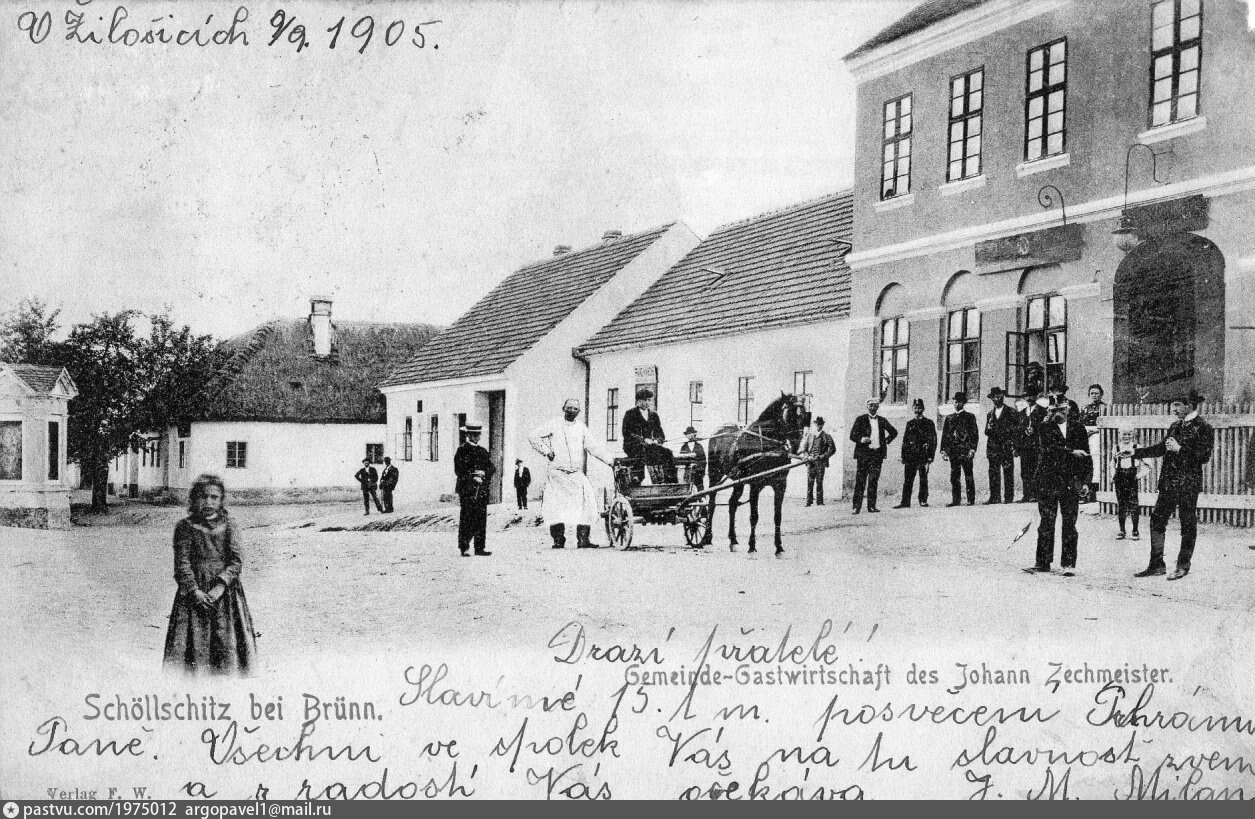 V Žilošicích 9/9. 1905.
Drazí přatelé!
Gemeinde-Gastwirtschaft des Johann Zechmeister.
Schöllschitz bei Brünn.
Slavímé 15. t m. posvěcení Chrámu
Paně. Všechni ve spolek Vás na tu slavnost zvem
a z radostí Vás očekáva J. M. Milan
Verlag F. W.
pastvu.com/1975012 argopavel1@mail.ru